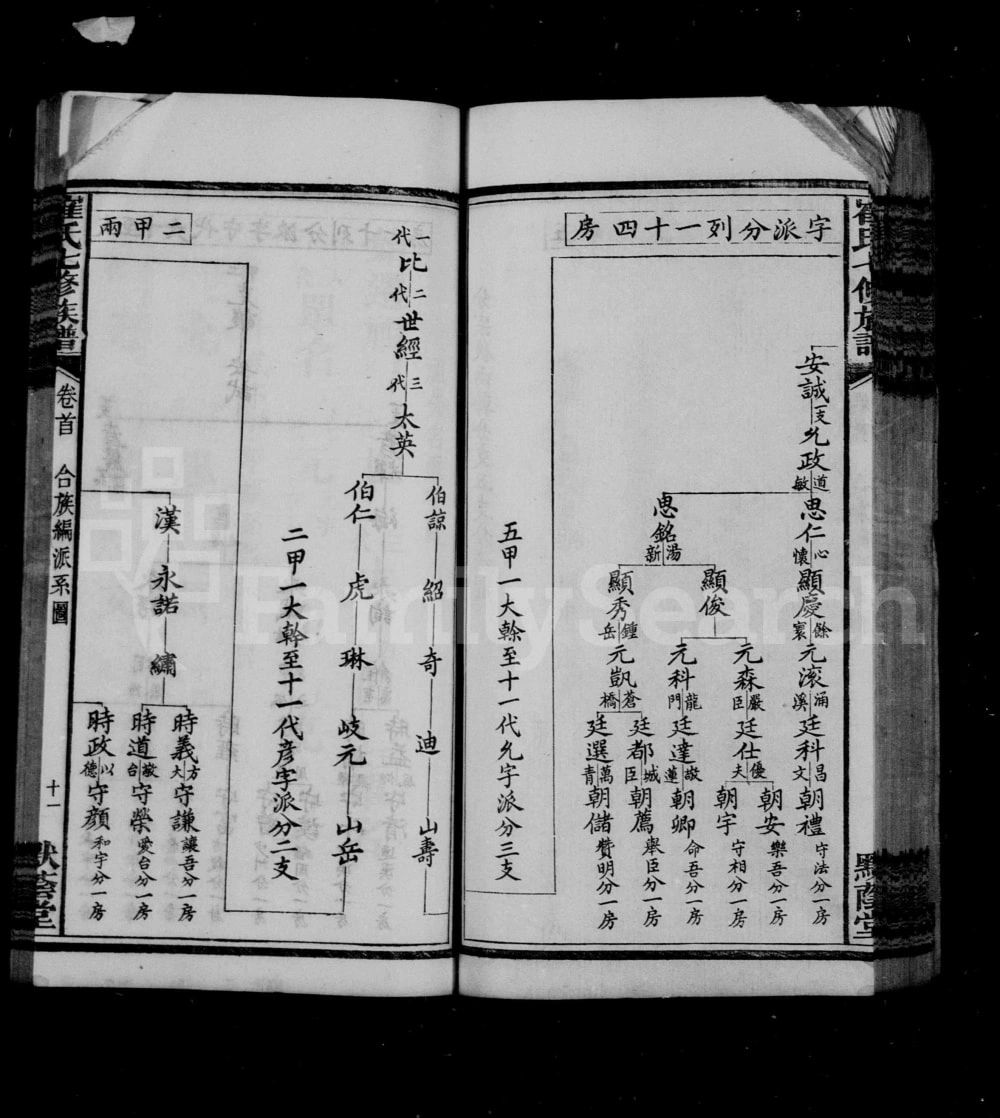 字派分列一十四房
安誠 一支 允政 道敏 思仁 心懷 顯慶 餘寰 元滚 涌溪 廷科 昌文 朝禮 守法分一房
朝安 樂吾分一房
元森 嚴臣 廷仕 優夫 朝宇 守相分一房
顯俊
元科 龍門 廷達 敬蓮 朝卿 命吾分一房
思銘 湯新
廷都 城臣 朝薦 舉臣分一房
顯秀 鍾岳 元凱 蒼橋 廷選 萬青 朝儲 贊明分一房
五甲一大榦至十一代允字派分三支
一代 比 二代 世經 三代 太英
伯諒 紹 奇 迪 山壽
伯仁 虎 琳 岐元 山岳
二甲一大幹至十一代彦字派分二支
二甲兩
漢 永諾 繡
時義 方大 守謙 讓吾分一房
時道 敬台 守榮 愛台分一房
時政 以德 守顏 和宇分一房
崔氏七修族譜
卷首 合族編派系圖
十一
默蔭堂
FamilySearch